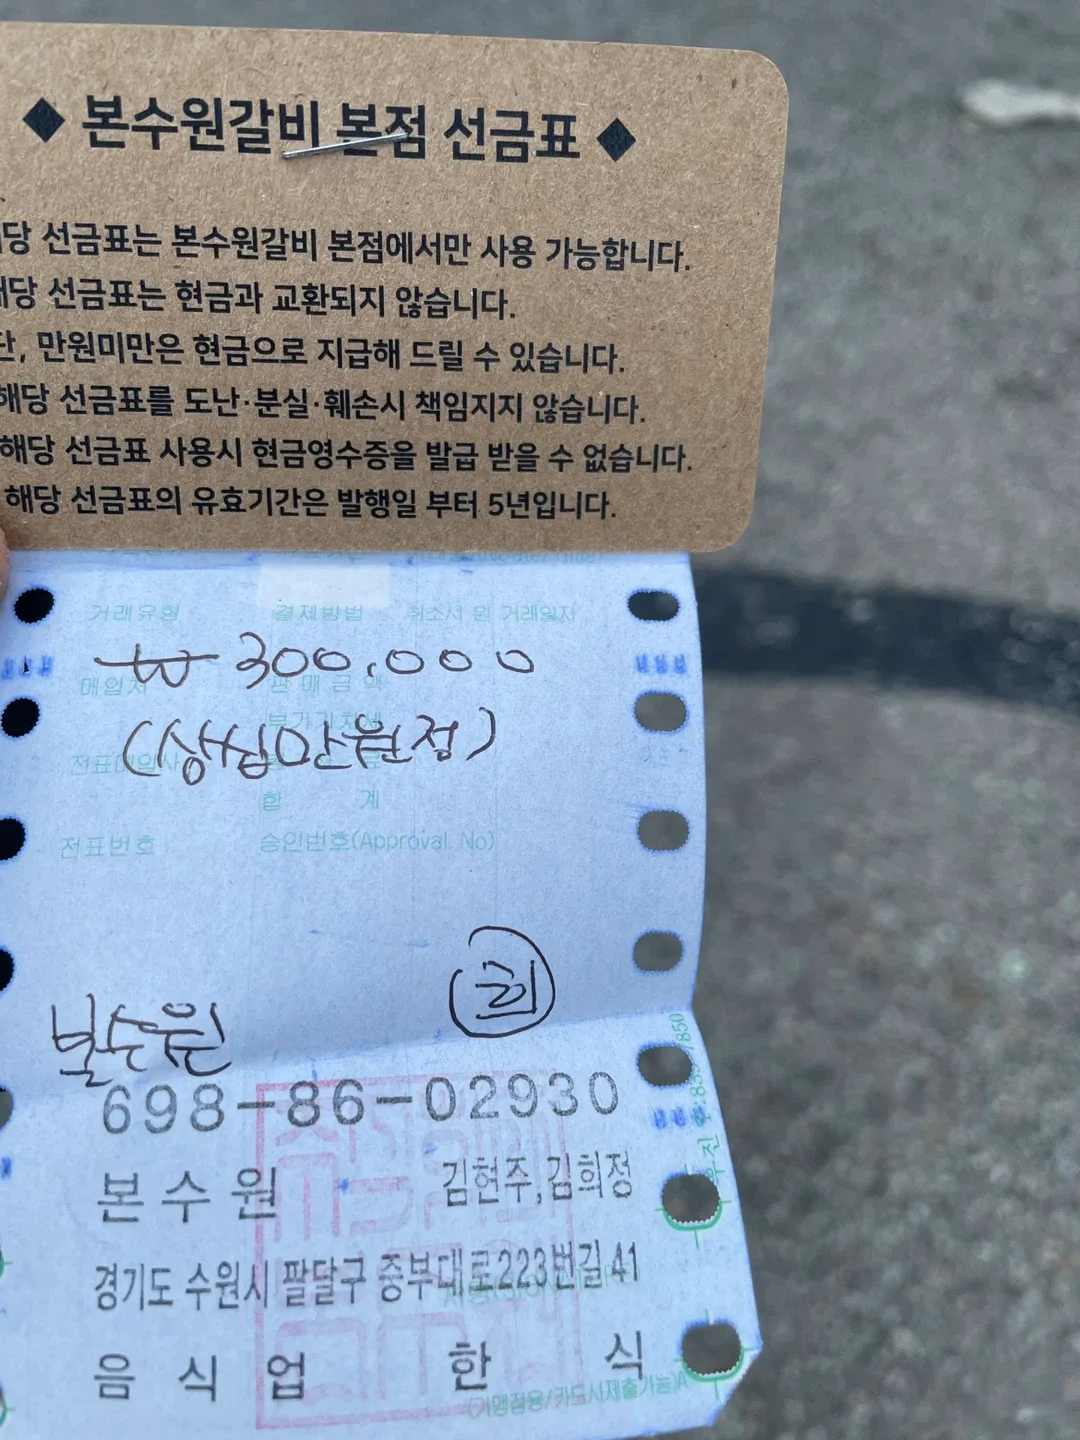 ◆ 본수원갈비 본점 선금표 ◆
해당 선금표는 본수원갈비 본점에서만 사용 가능합니다.
해당 선금표는 현금과 교환되지 않습니다.
단, 만원미만은 현금으로 지급해 드릴 수 있습니다.
해당 선금표를 도난·분실·훼손시 책임지지 않습니다.
해당 선금표 사용시 현금영수증을 발급 받을 수 없습니다.
해당 선금표의 유효기간은 발행일 부터 5년입니다.
거래유형 결제방법 취소시 원 거래일자
₩ 300,000
매입처 판 매 금 액
부가가치세
(삼십만원정)
전표매입사
합 계
전표번호 승인번호(Approval No)
희
본수원
698-86-02930
본 수 원 김현주,김희정
경기도 수원시 팔달구 중부대로223번길 41
음 식 업 한 식
(가맹점용/카드사제출가능)A